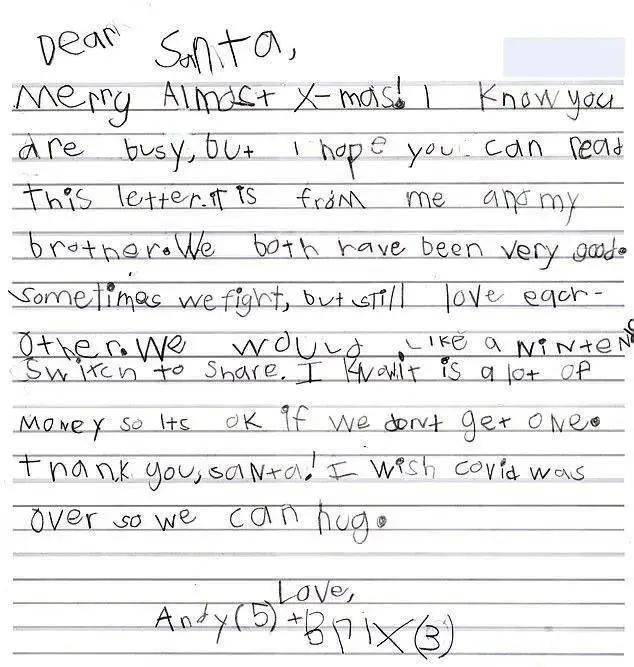 Dear Santa,
Merry Almost X-mas! I know you
are busy, but I hope you can read
this letter. It is from me and my
brother. We both have been very good.
Sometimes we fight, but still love each-
other. We would like a Nintendo
Switch to share. I know It is a lot of
money so Its OK if we dont get one.
Thank you, Santa! I wish covid was
over so we can hug.
Love,
Andy (5) + Brix (3)